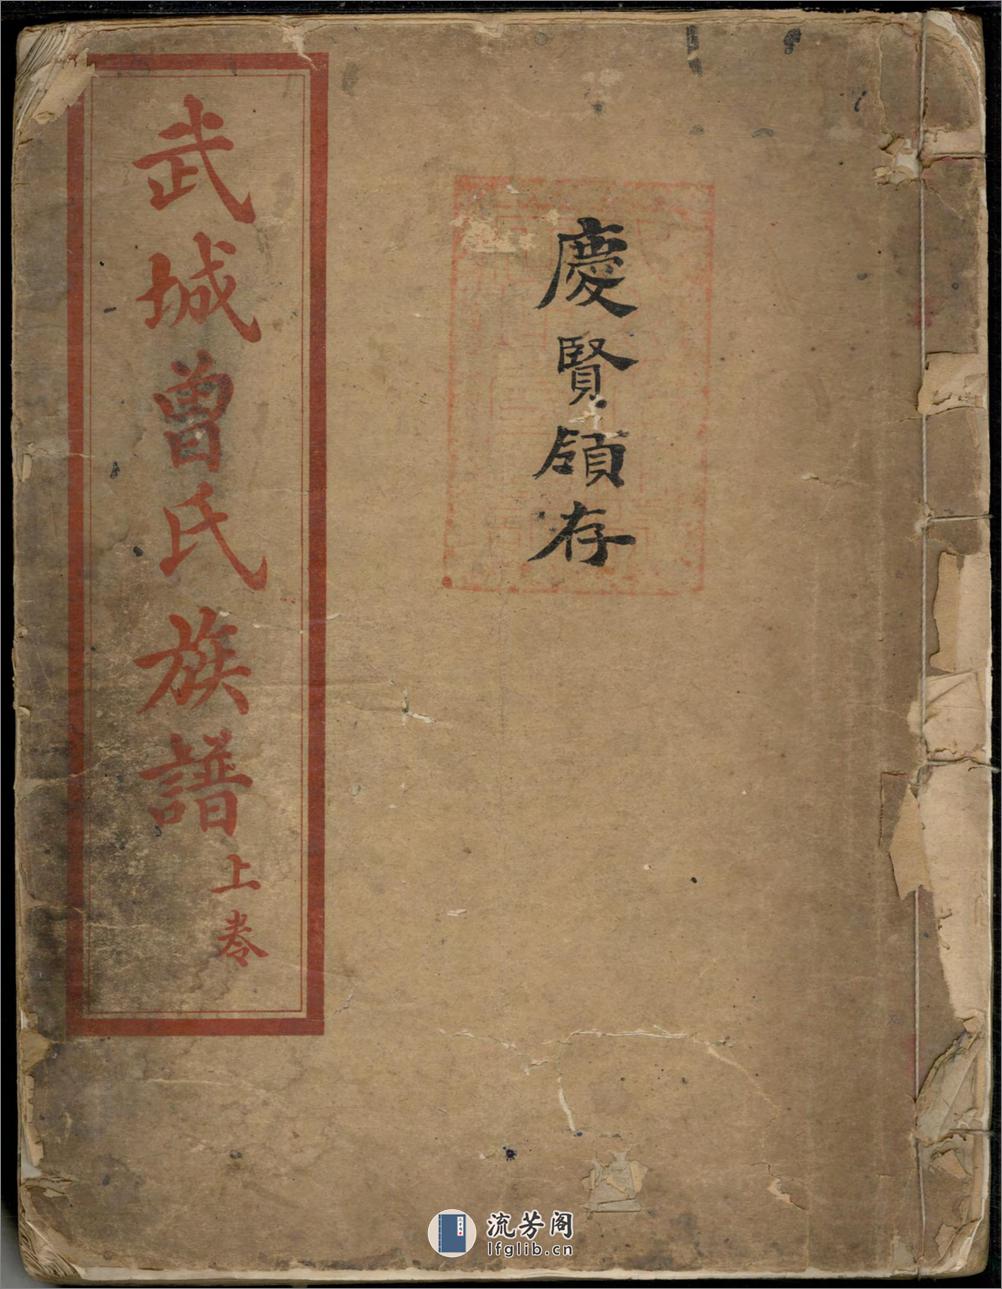 慶賢領存
武城曾氏族譜
上卷
流芳阁
lfglib.cn